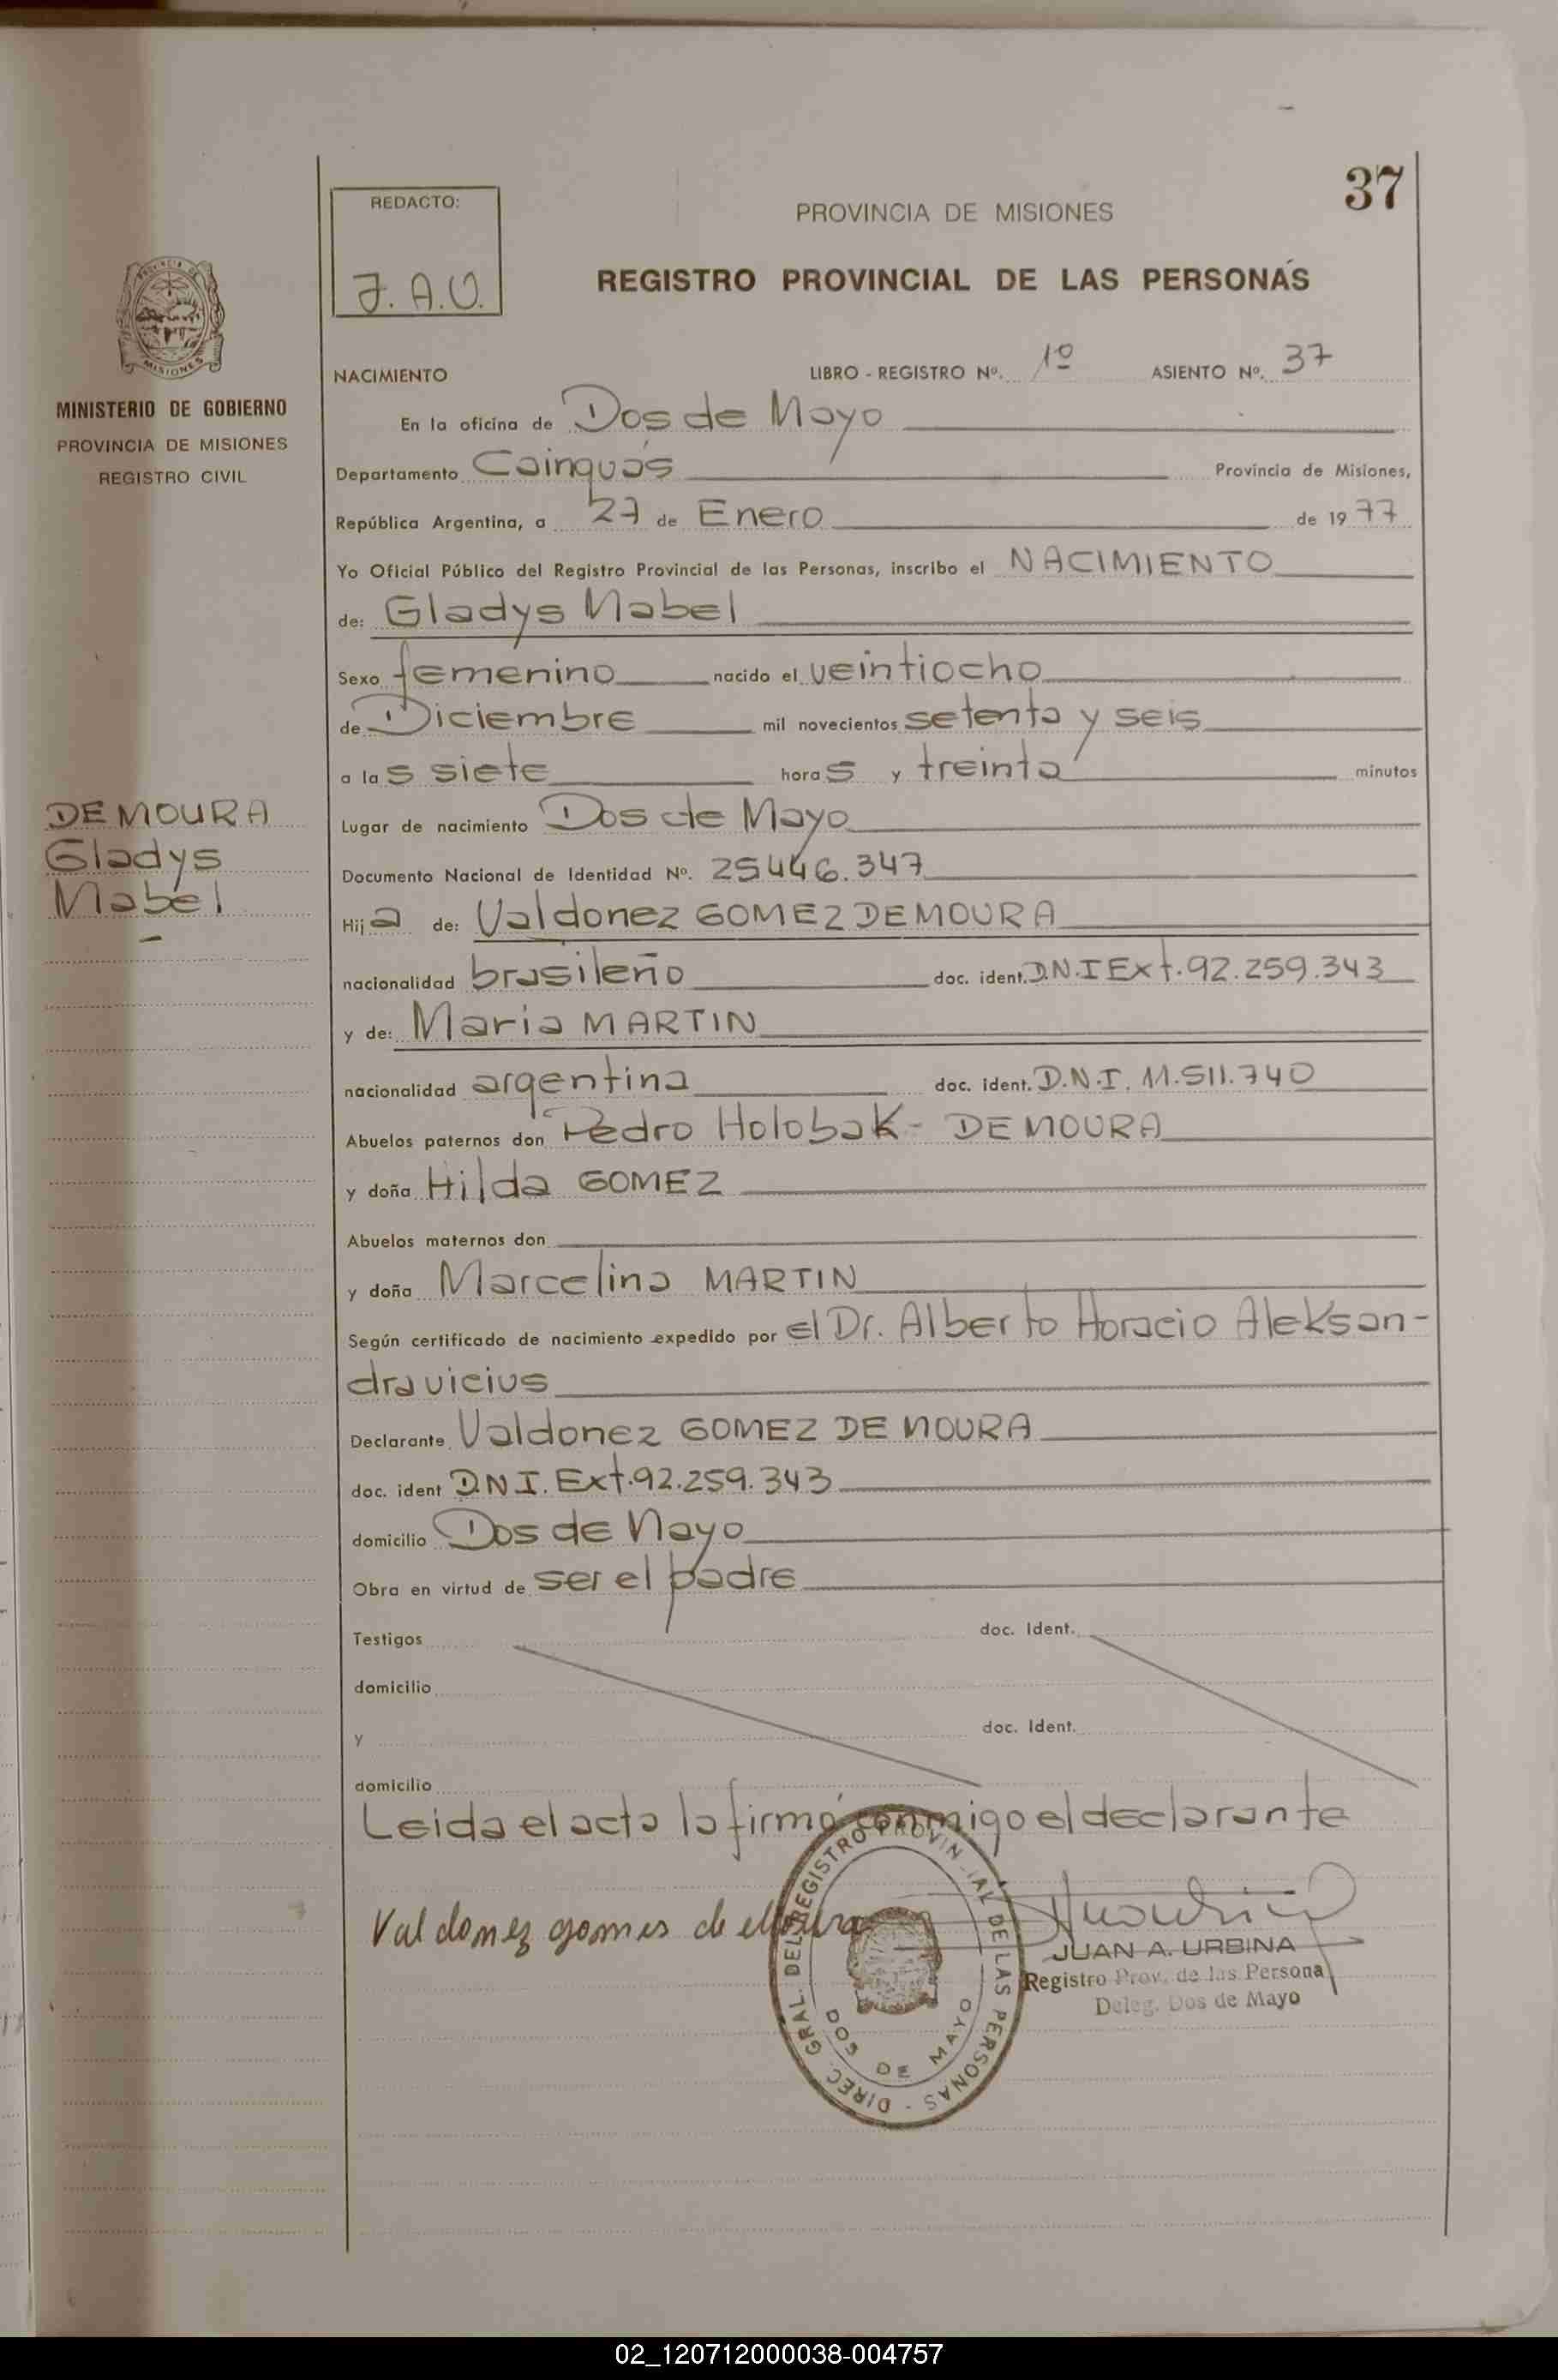 37
REDACTO:
J. A. U.
PROVINCIA DE MISIONES
REGISTRO PROVINCIAL DE LAS PERSONAS
PROVINCIA DE
MISIONES
MINISTERIO DE GOBIERNO
PROVINCIA DE MISIONES
REGISTRO CIVIL
NACIMIENTO LIBRO - REGISTRO Nº. 1º ASIENTO Nº. 37
En la oficina de Dos de Mayo
Departamento Cainguás Provincia de Misiones,
República Argentina, a 27 de Enero de 1977
Yo Oficial Público del Registro Provincial de las Personas, inscribo el NACIMIENTO
de: Gladys Mabel
Sexo femenino nacido el veintiocho
de Diciembre mil novecientos setenta y seis
a las siete horas y treinta minutos
DE MOURA
Gladys
Mabel
Lugar de nacimiento Dos de Mayo
Documento Nacional de Identidad Nº. 25446.347
Hija de: Valdonez GOMEZ DE MOURA
nacionalidad brasileño doc. ident. D.N.I Ext. 92.259.343
y de: Maria MARTIN
nacionalidad argentina doc. ident. D.N.I. 11.511.740
Abuelos paternos don Pedro Holobak - DE MOURA
y doña Hilda GOMEZ
Abuelos maternos don
y doña Marcelina MARTIN
Según certificado de nacimiento expedido por el Dr. Alberto Horacio Aleksan-
dravicius
Declarante Valdonez GOMEZ DE MOURA
doc. ident D.N I. Ext. 92.259.343
domicilio Dos de Mayo
Obra en virtud de ser el padre
Testigos doc. Ident.
domicilio
y doc. Ident.
domicilio
Leida el acta la firmó conmigo el declarante
Valdonez gomes de Moura
JUAN A. URBINA
Registro Prov. de las Persona
Deleg. Dos de Mayo
DIREC. GRAL. DEL REGISTRO PROVINCIAL DE LAS PERSONAS -
DOS DE MAYO
02_120712000038-004757